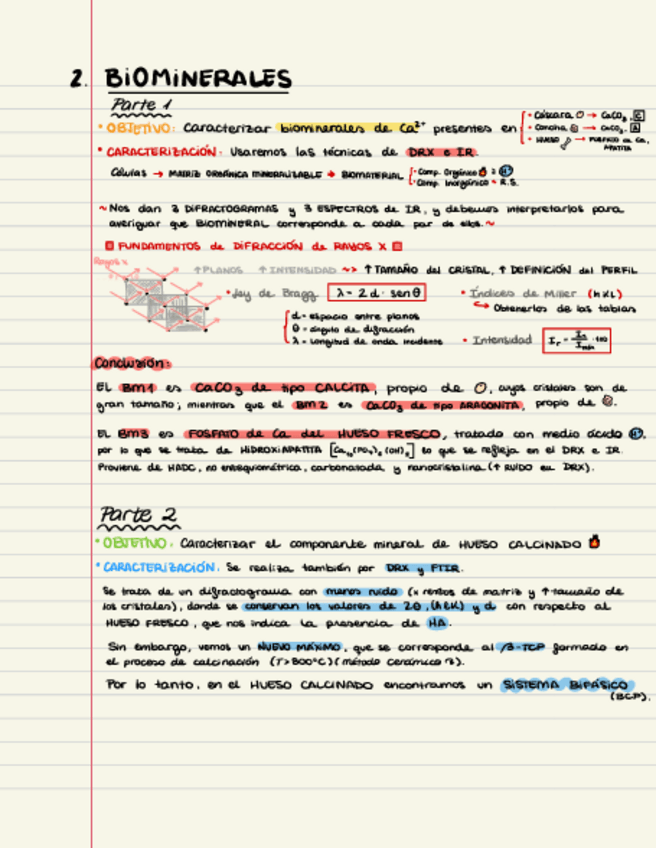 2. BIOMINERALES
Parte 1
• OBJETIVO: Caracterizar biominerales de Ca²⁺ presentes en
• Cáscara → CaCO₃ C
• Concha → CaCO₃ A
• HUESO → FOSFATO de Ca, APATITA
• CARACTERIZACIÓN: Usaremos las técnicas de DRX e IR.
Células → MATRIZ ORGÁNICA MINERALIZABLE → BIOMATERIAL
• Comp. Orgánico
• Comp. Inorgánico → R.S.
~ Nos dan 3 DIFRACTOGRAMAS y 3 ESPECTROS de IR, y debemos interpretarlos para
averiguar que BIOMINERAL corresponde a cada par de ellos. ~
FUNDAMENTOS de DIFRACCIÓN de RAYOS X
Rayos X
↑ PLANOS ↑ INTENSIDAD ~> ↑ TAMAÑO del CRISTAL, ↑ DEFINICIÓN del PERFIL
• Ley de Bragg λ = 2 d · senθ
• Índices de Miller (hkl)
↪ Obtenerlos de las tablas
d = espacio entre planos
θ = ángulo de difracción
λ = longitud de onda incidente
• Intensidad
Conclusión:
EL Bm1 es CaCO₃ de tipo CALCITA, propio de , cuyos cristales son de
gran tamaño; mientras que el Bm2 es CaCO₃ de tipo ARAGONITA, propio de .
EL Bm3 es FOSFATO de Ca del HUESO FRESCO, tratado con medio ácido H⁺,
por lo que se trata de HIDROXIAPATITA [Ca₁₀(PO₄)₆(OH)₂] lo que se refleja en el DRX e IR.
Proviene de HADC, no estequiométrica, carbonatada y nanocristalina (↑ RUIDO en DRX).
Parte 2
• OBJETIVO: Caracterizar el componente mineral de HUESO CALCINADO
• CARACTERIZACIÓN: Se realiza también por DRX y FTIR.
Se trata de un difractograma con menos ruido (x restos de matriz y ↑ tamaño de
los cristales), donde se conservan los valores de 2θ, (hkl) y d con respecto al
HUESO FRESCO, que nos indica la presencia de HA.
Sin embargo, vemos un NUEVO MÁXIMO, que se corresponde al β-TCP formado en
el proceso de calcinación (T>800°C) (método cerámico).
Por lo tanto, en el HUESO CALCINADO encontramos un SISTEMA BIFÁSICO
(BCP).